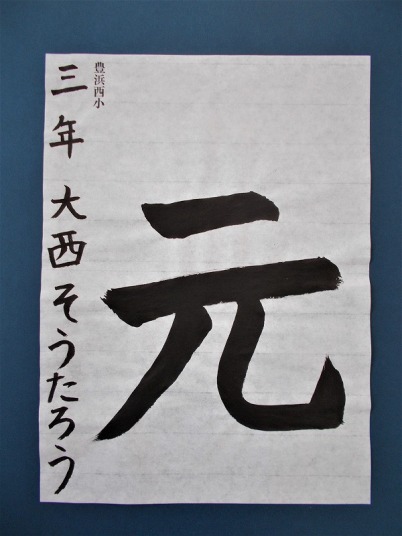 元
豊浜西小
三年 大西そうたろう